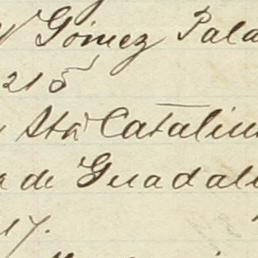 Gómez Pala
215
Sta Catalin
a de Guadal
17.